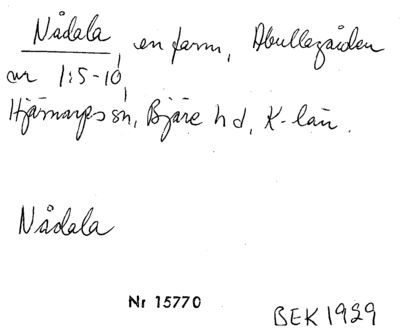 Nådala, en farm, Abullagården
nr 1:5-10,
Hjärnarps sn, Bjäre hd, K-län.
Nådala
Nr 15770
BEK 1929